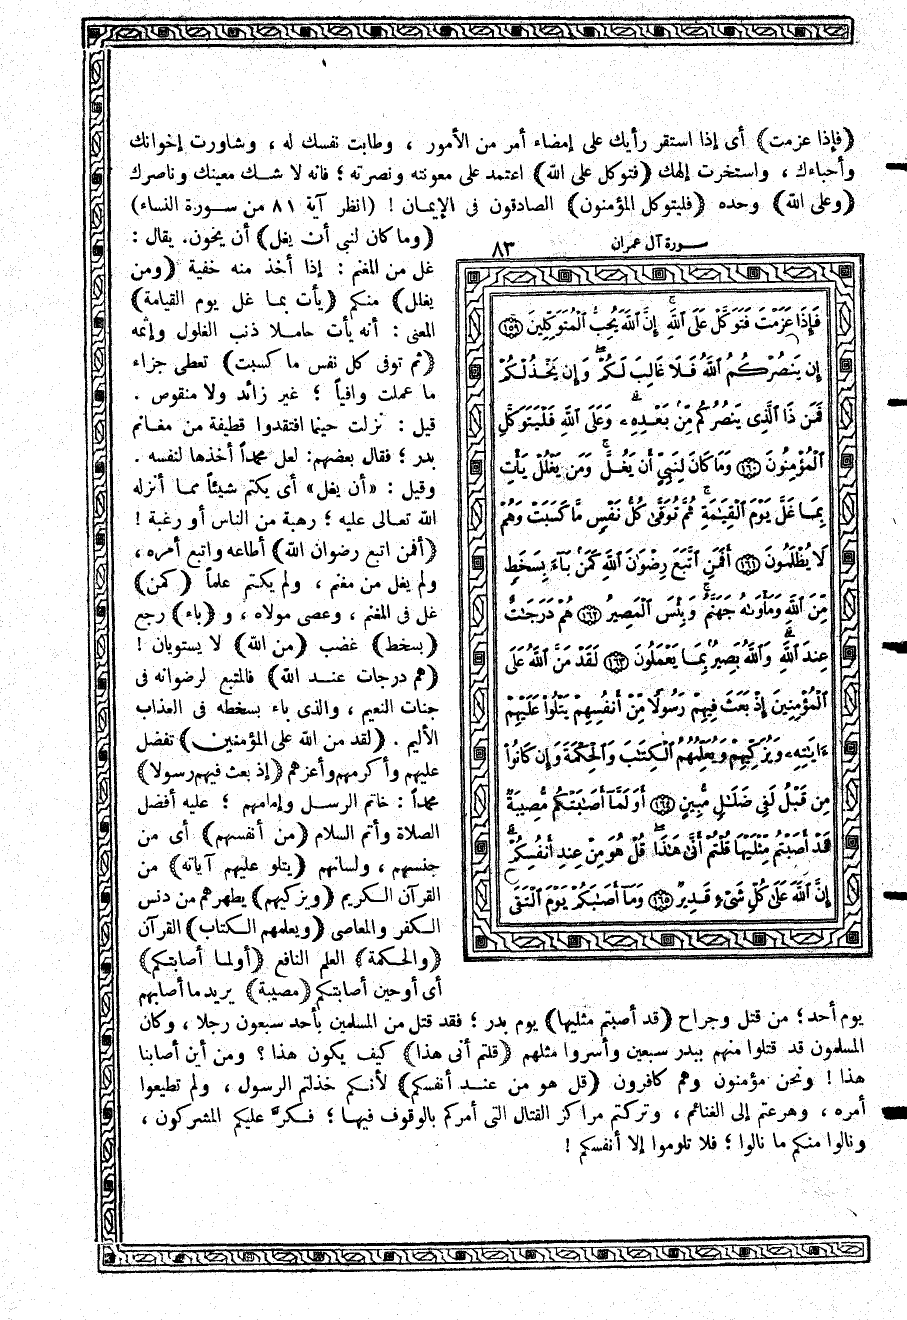 (فإذا عزمت) أى إذا استقر رأيك على إمضاء أمر من الأمور ، وطابت نفسك له ، وشاورت إخوانك
وأحباءك ، واستخرت إلهك (فتوكل على الله) اعتمد على معونته ونصرته ؛ فانه لا شك معينك وناصرك
(وعلى الله) وحده (فليتوكل المؤمنون) الصادقون فى الإيمان ! (انظر آية ٨١ من سورة النساء)
(وما كان لنبى أن يغل) أن يخون. يقال :
غل من المغنم : إذا أخذ منه خفية (ومن
يغلل) منكم (يأت بما غل يوم القيامة)
المعنى : أنه يأت حاملا ذنب الغلول وإثمه
(ثم توفى كل نفس ما كسبت) تعطى جزاء
ما عملت وافياً ؛ غير زائد ولا منقوص .
قيل : نزلت حينما افتقدوا قطيفة من مغانم
بدر ؛ فقال بعضهم: لعل محمداً أخذها لنفسه .
وقيل : «أن يغل» أى يكتم شيئاً مما أنزله
الله تعالى عليه ؛ رهبة من الناس أو رغبة !
(أفمن اتبع رضوان الله) أطاعه واتبع أمره ،
ولم يغل من مغنم ، ولم يكتم علماً (كمن)
غل فى المغنم ، وعصى مولاه ، و (باء) رجع
(بسخط) غضب (من الله) لا يستويان !
(هم درجات عند الله) فالمتبع لرضوانه فى
جنات النعيم ، والذى باء بسخطه فى العذاب
الأليم . (لقد من الله على المؤمنين) تفضل
عليهم وأكرمهم وأعزهم (إذ بعث فيهم رسولا)
محمداً : خاتم الرسل وإمامهم ؛ عليه أفضل
الصلاة وأتم السلام (من أنفسهم) أى من
جنسهم ، ولسانهم (يتلو عليهم آياته) من
القرآن الكريم (ويزكيهم) يطهرهم من دنس
الكفر والمعاصى (ويعلمهم الكتاب) القرآن
(والحكمة) العلم النافع (أولما أصابتكم)
أى أوحين أصابتكم (مصيبة) يريد ما أصابهم
سورة آل عمران ٨٣
فَإِذَا عَزَمْتَ فَتَوَكَّلْ عَلَى ٱللَّهِ ۚ إِنَّ ٱللَّهَ يُحِبُّ ٱلْمُتَوَكِّلِينَ ١٥٩
إِن يَنصُرْكُمُ ٱللَّهُ فَلَا غَالِبَ لَكُمْ ۖ وَإِن يَخْذُلْكُمْ
فَمَن ذَا ٱلَّذِى يَنصُرُكُم مِّنۢ بَعْدِهِۦ ۗ وَعَلَى ٱللَّهِ فَلْيَتَوَكَّلِ
ٱلْمُؤْمِنُونَ ١٦٠ وَمَا كَانَ لِنَبِىٍّ أَن يَغُلَّ ۚ وَمَن يَغْلُلْ يَأْتِ
بِمَا غَلَّ يَوْمَ ٱلْقِيَٰمَةِ ۚ ثُمَّ تُوَفَّىٰ كُلُّ نَفْسٍ مَّا كَسَبَتْ وَهُمْ
لَا يُظْلَمُونَ ١٦١ أَفَمَنِ ٱتَّبَعَ رِضْوَٰنَ ٱللَّهِ كَمَنۢ بَآءَ بِسَخَطٍ
مِّنَ ٱللَّهِ وَمَأْوَىٰهُ جَهَنَّمُ ۚ وَبِئْسَ ٱلْمَصِيرُ ١٦٢ هُمْ دَرَجَٰتٌ
عِندَ ٱللَّهِ ۗ وَٱللَّهُ بَصِيرٌۢ بِمَا يَعْمَلُونَ ١٦٣ لَقَدْ مَنَّ ٱللَّهُ عَلَى
ٱلْمُؤْمِنِينَ إِذْ بَعَثَ فِيهِمْ رَسُولًا مِّنْ أَنفُسِهِمْ يَتْلُوا۟ عَلَيْهِمْ
ءَايَٰتِهِۦ وَيُزَكِّيهِمْ وَيُعَلِّمُهُمُ ٱلْكِتَٰبَ وَٱلْحِكْمَةَ وَإِن كَانُوا۟
مِن قَبْلُ لَفِى ضَلَٰلٍ مُّبِينٍ ١٦٤ أَوَلَمَّآ أَصَٰبَتْكُم مُّصِيبَةٌ
قَدْ أَصَبْتُم مِّثْلَيْهَا قُلْتُمْ أَنَّىٰ هَٰذَا ۖ قُلْ هُوَ مِنْ عِندِ أَنفُسِكُمْ ۗ
إِنَّ ٱللَّهَ عَلَىٰ كُلِّ شَىْءٍ قَدِيرٌ ١٦٥ وَمَآ أَصَٰبَكُمْ يَوْمَ ٱلْتَقَى
يوم أحد ؛ من قتل وجراح (قد أصبتم مثليها) يوم بدر ؛ فقد قتل من المسلمين بأحد سبعون رجلا ، وكان
المسلمون قد قتلوا منهم ببدر سبعين وأسروا مثلهم (قلتم أنى هذا) كيف يكون هذا ؟ ومن أين أصابنا
هذا ! ونحن مؤمنون وهم كافرون (قل هو من عند أنفسكم) لأنكم خذلتم الرسول ، ولم تطيعوا
أمره ، وهرعتم إلى الغنائم ، وتركتم مراكز القتال التى أمركم بالوقوف فيها ؛ فكر عليكم المشركون ،
ونالوا منكم ما نالوا ؛ فلا تلوموا إلا أنفسكم !